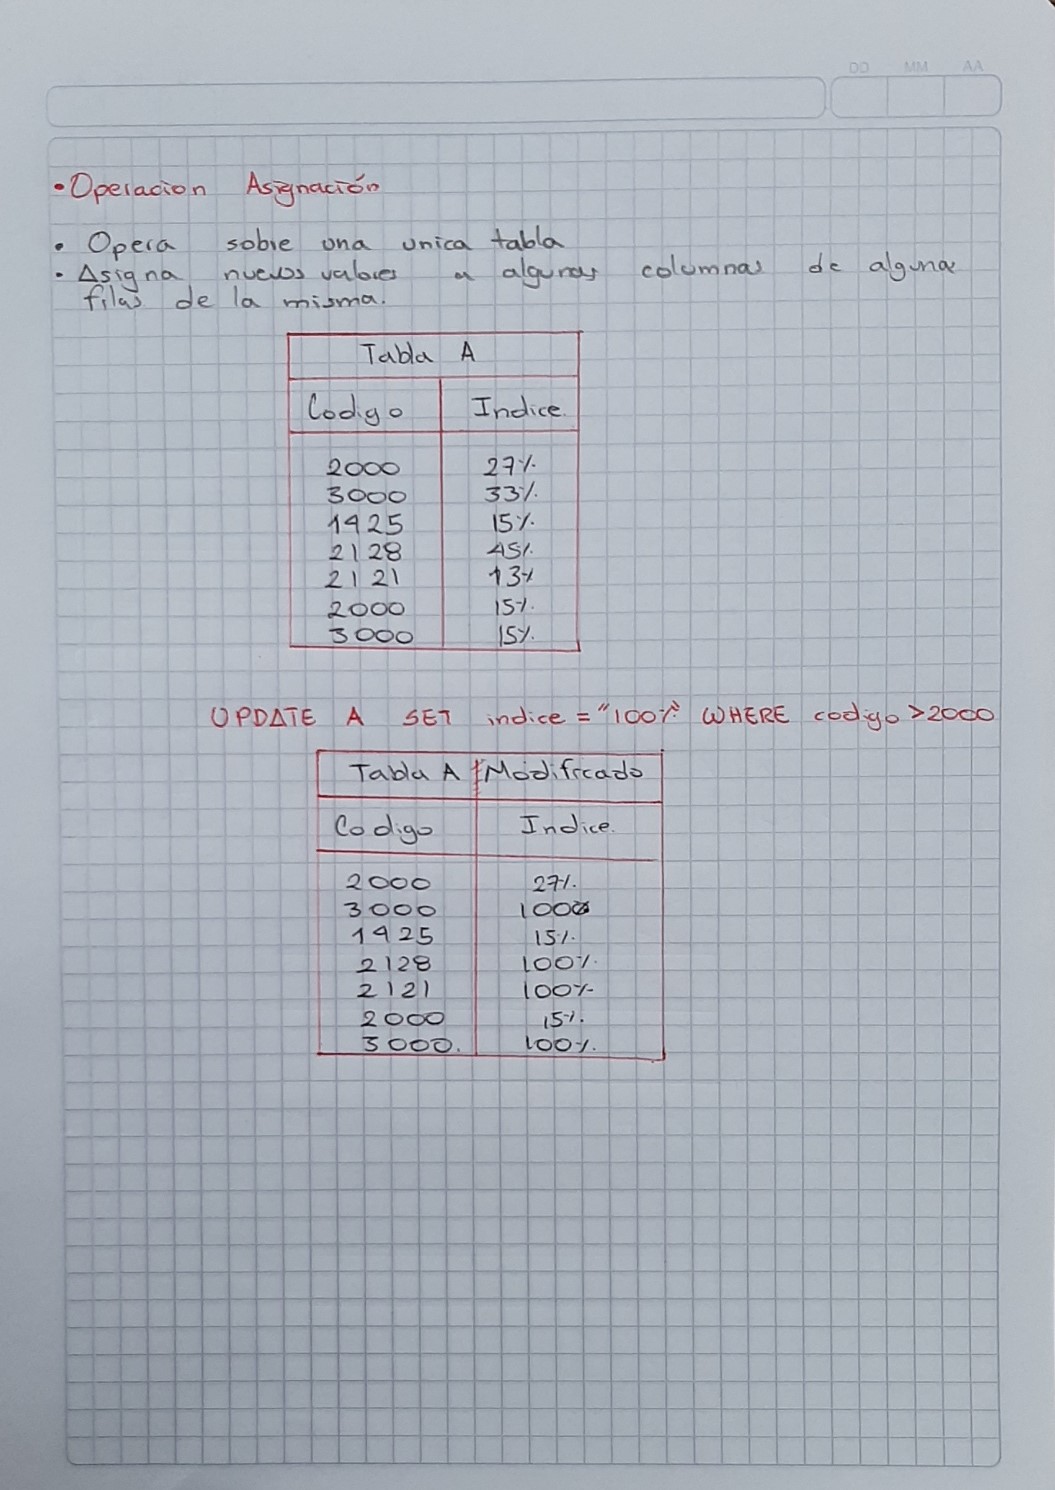 DD MM AA
• Operacion Asignación
• Opera sobre una unica tabla
• Asigna nuevos valores a algunas columnas de alguna
filas de la misma.
Tabla A
Codigo Indice.
2000 27%
3000 33%
1925 15%
2128 45%
2121 13%
2000 15%
3000 15%
UPDATE A SET indice = "100%" WHERE codigo >2000
Tabla A Modificado
Codigo Indice.
2000 27%
3000 100%
1925 15%
2128 100%
2121 100%
2000 15%
3000. 100%